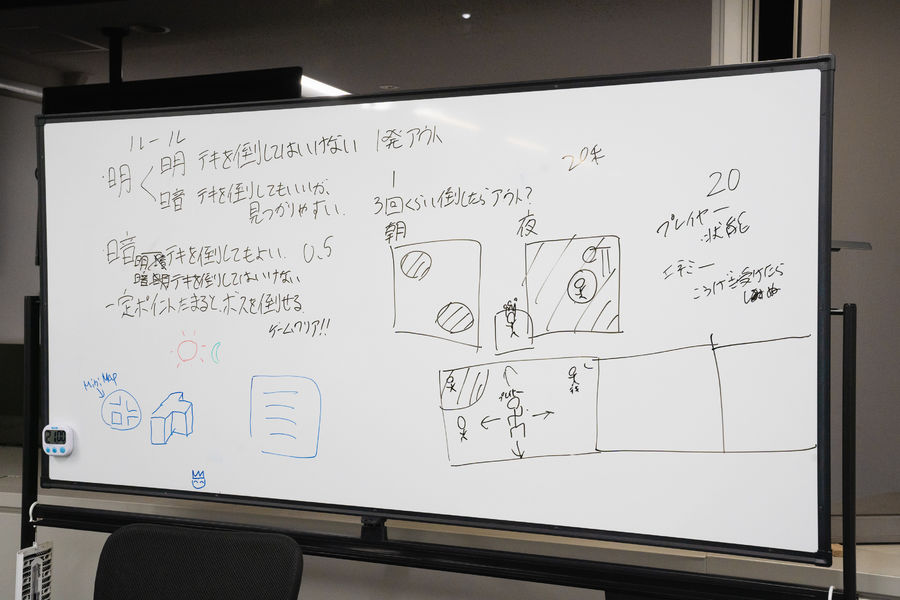 ルール
・明 明 テキを倒してはいけない 1発アウト
暗 テキを倒してもいいが、
見つかりやすい.
1
3回くらい倒したらアウト?
・暗 テキを倒してもよい. 0.5
テキを倒してはいけない
一定ポイントたまると、ボスを倒せる.
ゲームクリア!!
朝
夜
20
プレイヤー
状態
エネミー
こうげき受けたら
Mini Map